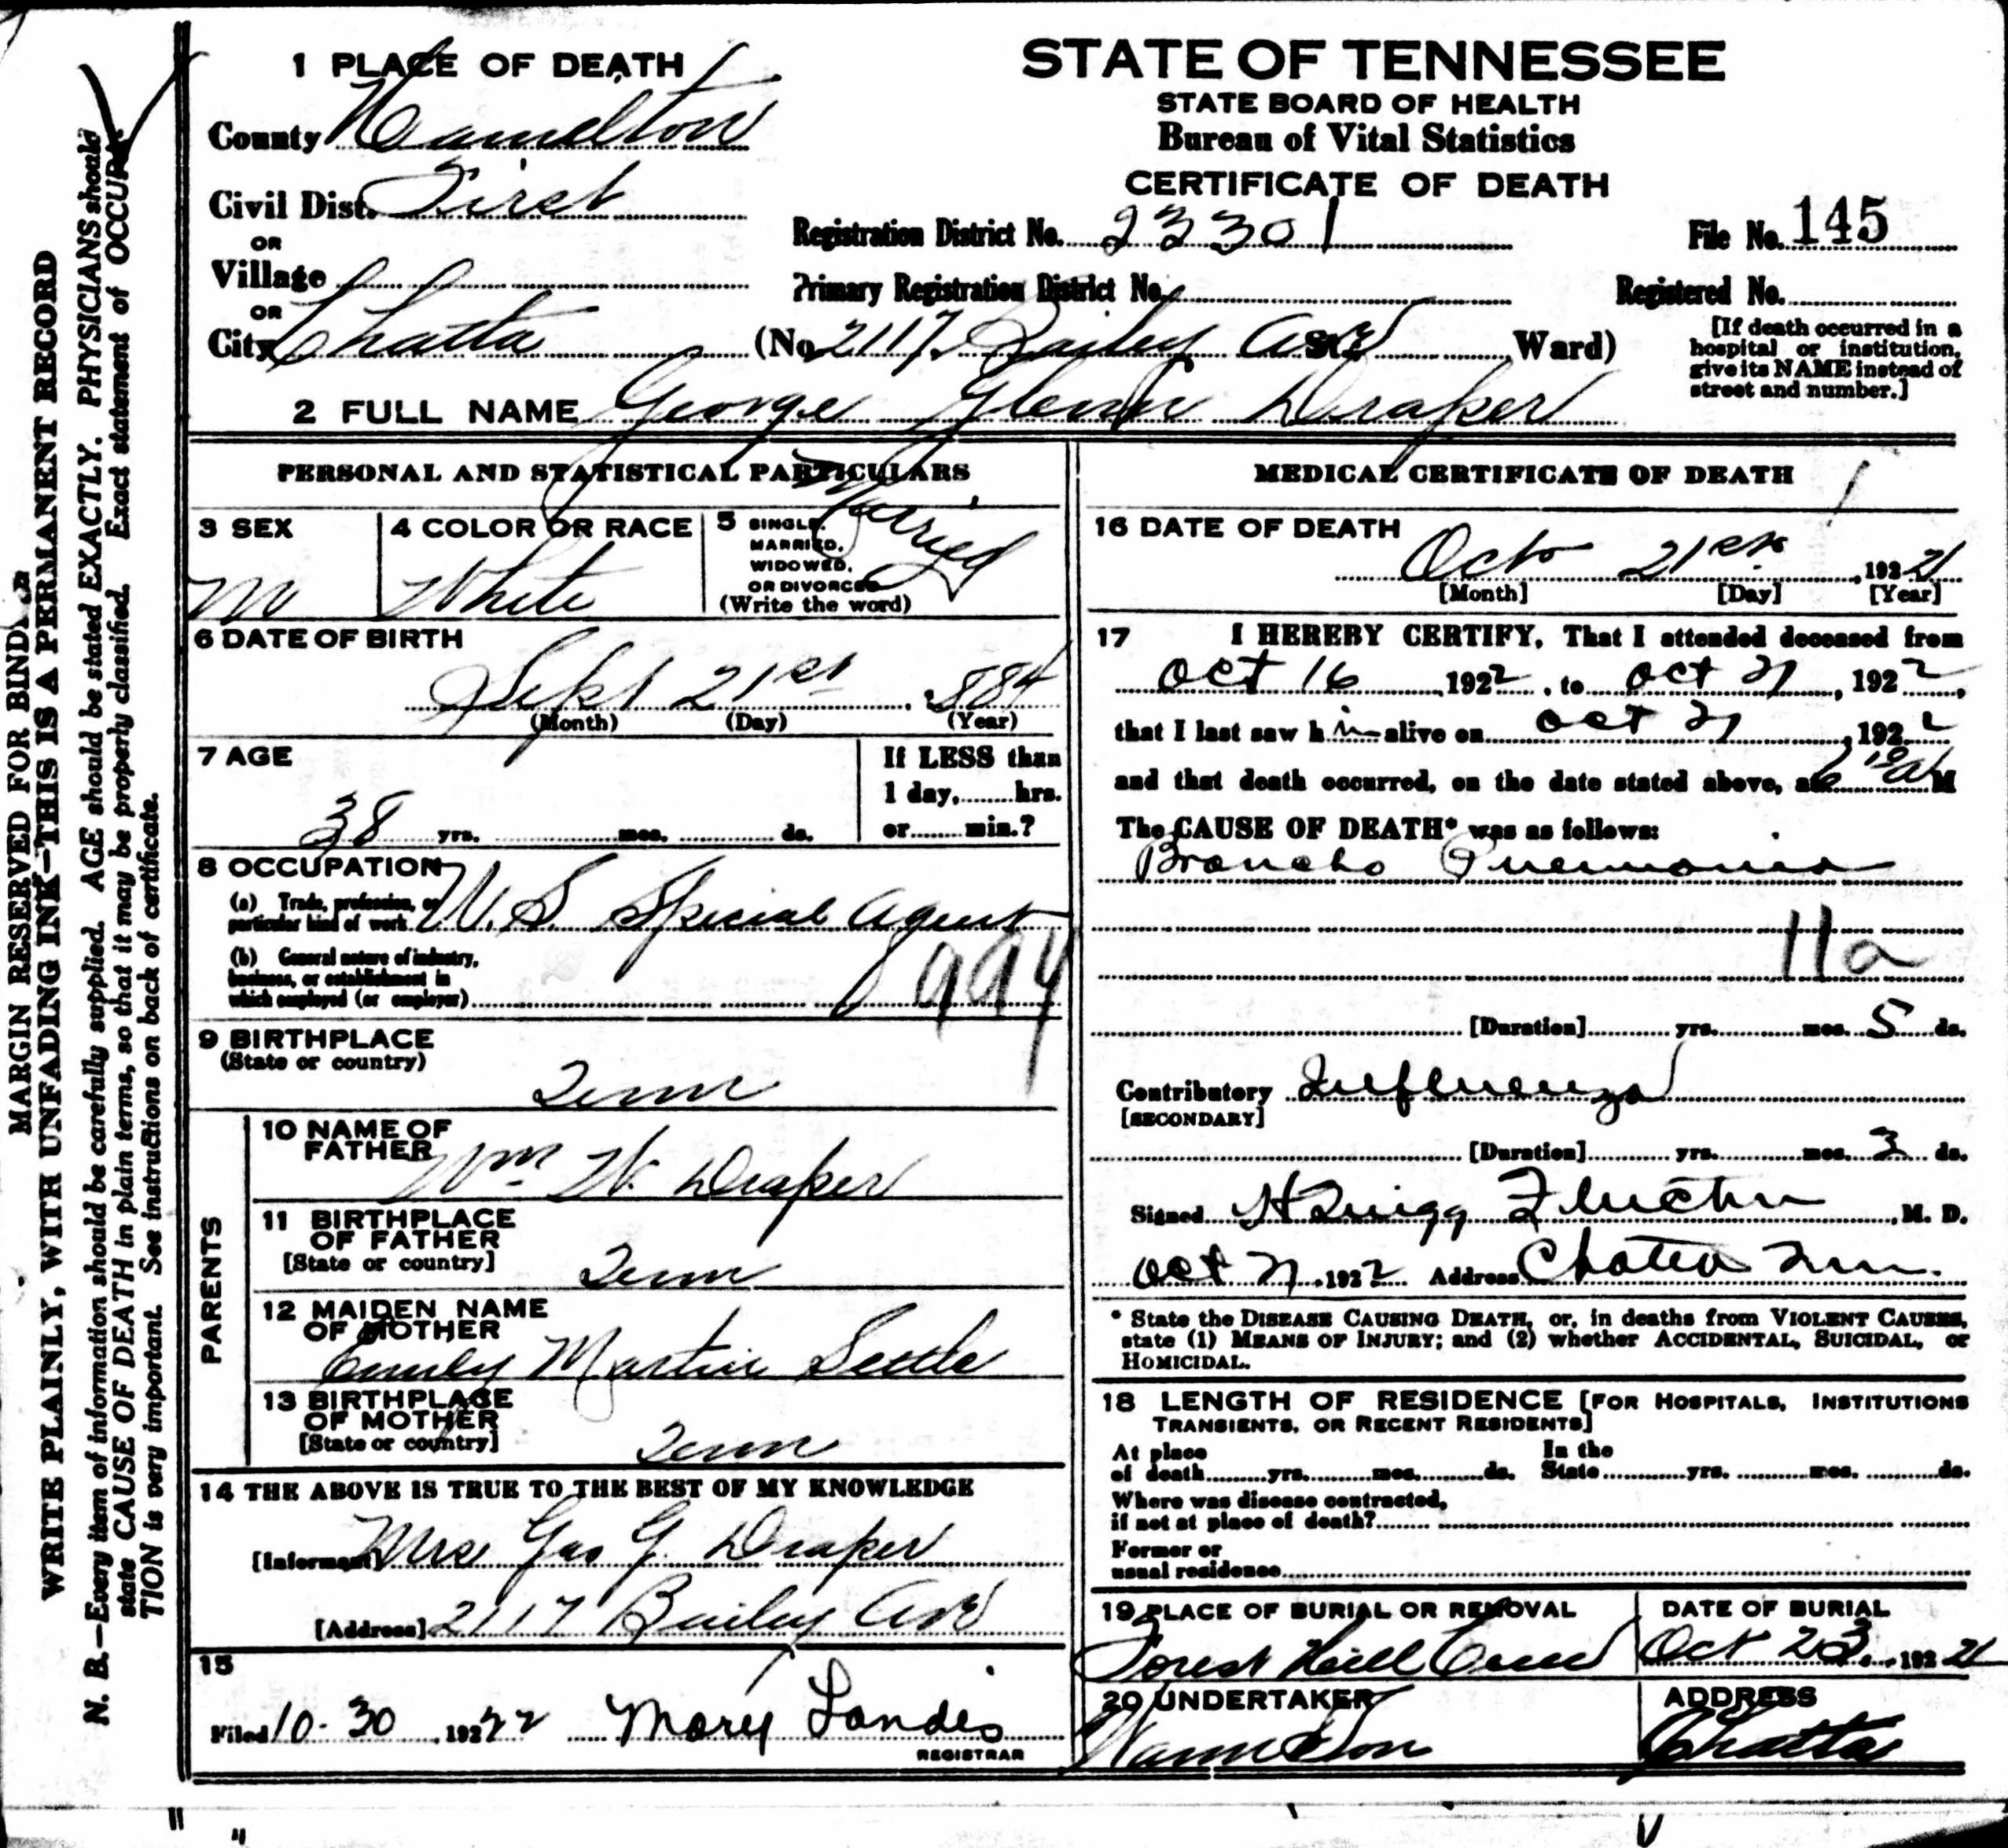 MARGIN RESERVED FOR BINDING
WRITE PLAINLY, WITH UNFADING INK—THIS IS A PERMANENT RECORD
N. B.—Every item of information should be carefully supplied. AGE should be stated EXACTLY. PHYSICIANS should
state CAUSE OF DEATH in plain terms, so that it may be properly classified. Exact statement of OCCUPA-
TION is very important. See instructions on back of certificate.
1 PLACE OF DEATH
County Hamilton
Civil Dist. First
OR
Village
OR
City Chatta (No. 2117 Bailey Ave St.; Ward)
STATE OF TENNESSEE
STATE BOARD OF HEALTH
Bureau of Vital Statistics
CERTIFICATE OF DEATH
Registration District No. 23301
File No. 145
Primary Registration District No.
Registered No.
[If death occurred in a
hospital or institution,
give its NAME instead of
street and number.]
2 FULL NAME George Glenn Draper
PERSONAL AND STATISTICAL PARTICULARS
3 SEX
M
4 COLOR OR RACE
White
5 SINGLE,
MARRIED,
WIDOWED,
OR DIVORCED
(Write the word)
Married
6 DATE OF BIRTH
Sept 21st 1884
(Month) (Day) (Year)
7 AGE
38 yrs. mos. ds.
If LESS than
1 day, hrs.
or min.?
8 OCCUPATION
(a) Trade, profession, or
particular kind of work U.S. Special Agent
(b) General nature of industry,
business, or establishment in
which employed (or employer)
994
9 BIRTHPLACE
(State or country)
Tenn
PARENTS
10 NAME OF
FATHER
Wm W. Draper
11 BIRTHPLACE
OF FATHER
[State or country] Tenn
12 MAIDEN NAME
OF MOTHER
Emily Martin Settle
13 BIRTHPLACE
OF MOTHER
[State or country] Tenn
14 THE ABOVE IS TRUE TO THE BEST OF MY KNOWLEDGE
[Informant] Mrs Geo G. Draper
[Address] 2117 Bailey Ave
15
Filed 10-30 1922 Mary Landis
REGISTRAR
MEDICAL CERTIFICATE OF DEATH
16 DATE OF DEATH
Oct 21st, 192
[Month] [Day] [Year]
17 I HEREBY CERTIFY, That I attended deceased from
Oct 16 1922, to Oct 21, 1922,
that I last saw him alive on Oct 21, 1922
and that death occurred, on the date stated above, at 6 10 a M
The CAUSE OF DEATH* was as follows:
Broncho Pneumonia
11a
[Duration] yrs. mos. 5 ds.
Contributory Influenza
[SECONDARY]
[Duration] yrs. mos. 3 ds.
Signed H Quigg Fletcher, M. D.
Oct 21, 1922 Address Chatta Tenn.
* State the DISEASE CAUSING DEATH, or, in deaths from VIOLENT CAUSES,
state (1) MEANS OF INJURY; and (2) whether ACCIDENTAL, SUICIDAL, or
HOMICIDAL.
18 LENGTH OF RESIDENCE [FOR HOSPITALS, INSTITUTIONS
TRANSIENTS, OR RECENT RESIDENTS]
At place In the
of death yrs. mos. ds. State yrs. mos. ds.
Where was disease contracted,
if not at place of death?
Former or
usual residence
19 PLACE OF BURIAL OR REMOVAL
Forest Hill Cem
DATE OF BURIAL
Oct 23, 192
20 UNDERTAKER
Son
ADDRESS
Chatta